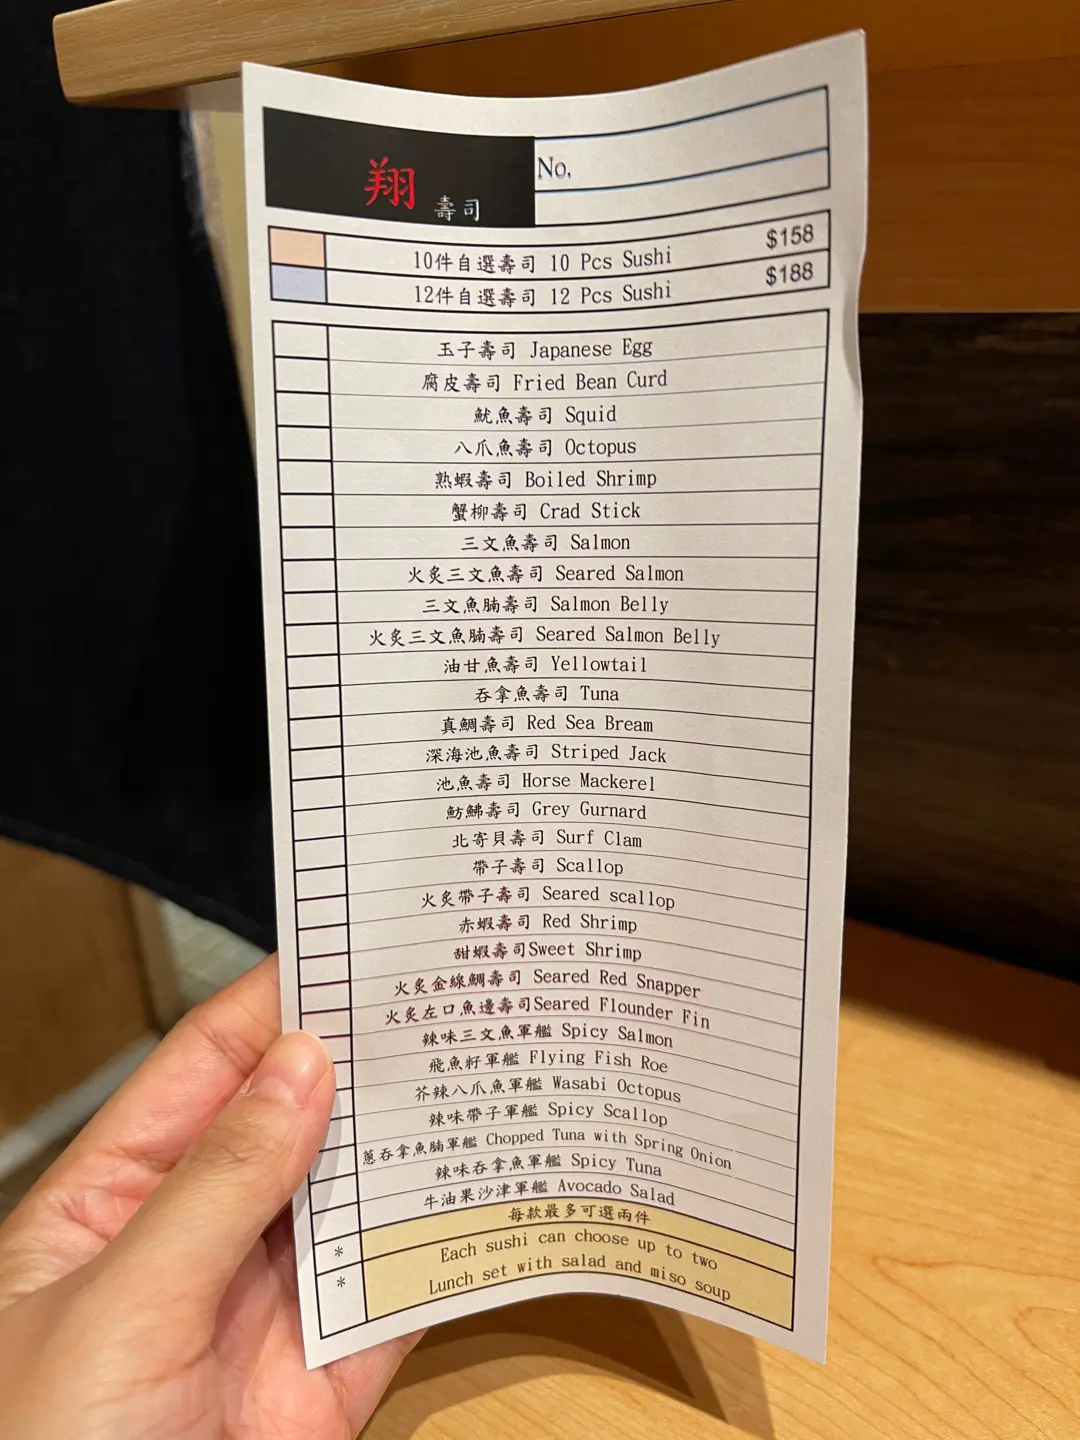 翔 壽司
No.
10件自選壽司 10 Pcs Sushi $158
12件自選壽司 12 Pcs Sushi $188
玉子壽司 Japanese Egg
腐皮壽司 Fried Bean Curd
魷魚壽司 Squid
八爪魚壽司 Octopus
熟蝦壽司 Boiled Shrimp
蟹柳壽司 Crad Stick
三文魚壽司 Salmon
火炙三文魚壽司 Seared Salmon
三文魚腩壽司 Salmon Belly
火炙三文魚腩壽司 Seared Salmon Belly
油甘魚壽司 Yellowtail
吞拿魚壽司 Tuna
真鯛壽司 Red Sea Bream
深海池魚壽司 Striped Jack
池魚壽司 Horse Mackerel
魴鮄壽司 Grey Gurnard
北寄貝壽司 Surf Clam
帶子壽司 Scallop
火炙帶子壽司 Seared scallop
赤蝦壽司 Red Shrimp
甜蝦壽司Sweet Shrimp
火炙金線鯛壽司 Seared Red Snapper
火炙左口魚邊壽司Seared Flounder Fin
辣味三文魚軍艦 Spicy Salmon
飛魚籽軍艦 Flying Fish Roe
芥辣八爪魚軍艦 Wasabi Octopus
辣味帶子軍艦 Spicy Scallop
蔥吞拿魚腩軍艦 Chopped Tuna with Spring Onion
辣味吞拿魚軍艦 Spicy Tuna
牛油果沙津軍艦 Avocado Salad
每款最多可選兩件
* Each sushi can choose up to two
* Lunch set with salad and miso soup